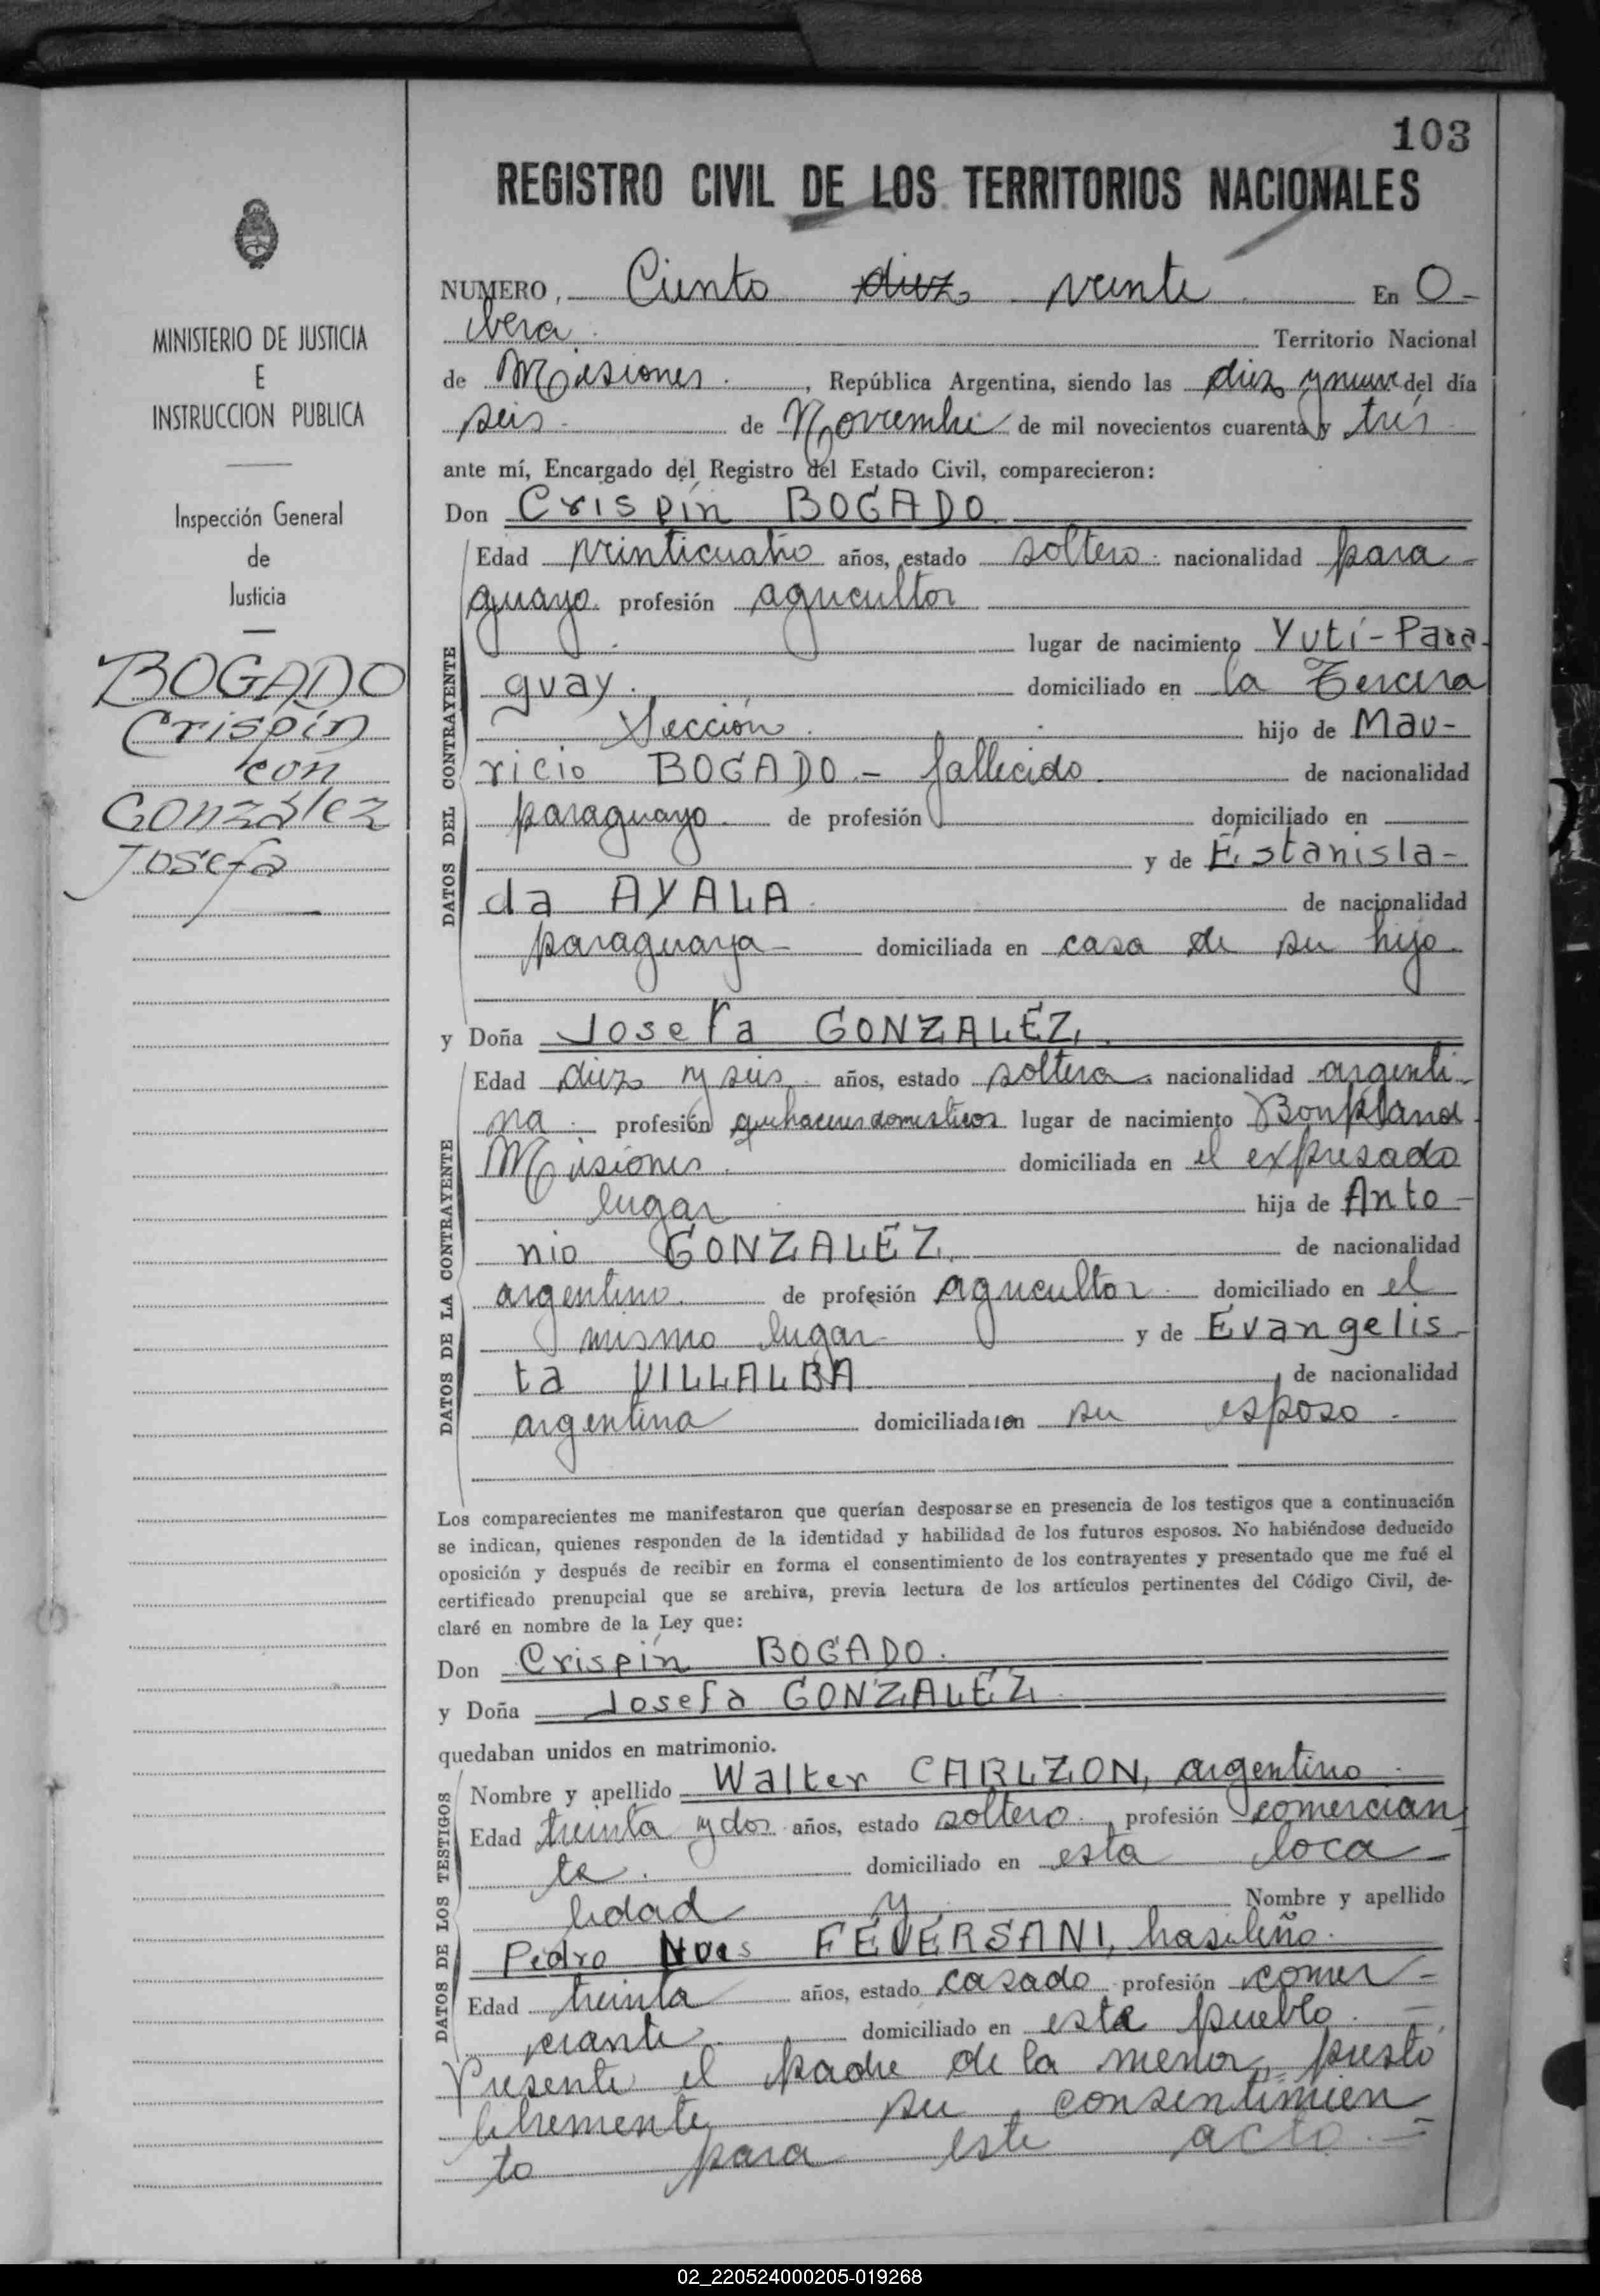 103
REGISTRO CIVIL DE LOS TERRITORIOS NACIONALES
MINISTERIO DE JUSTICIA
E
INSTRUCCION PUBLICA
Inspección General
de
Justicia
BOGADO
Crispín
con
González
Josefa
NUMERO, Ciento diez veinte En O-
bera Territorio Nacional
de Misiones, República Argentina, siendo las diez y nueve del día
seis de Noviembre de mil novecientos cuarenta y trés
ante mí, Encargado del Registro del Estado Civil, comparecieron:
Don Crispín BOGADO
DATOS DEL CONTRAYENTE
Edad veinticuatro años, estado soltero nacionalidad para-
guayo profesión agricultor
lugar de nacimiento Yutí-Para-
guay. domiciliado en la Tercera
Sección hijo de Mau-
ricio BOGADO - fallecido de nacionalidad
paraguayo de profesión domiciliado en
y de Estanisla-
da AYALA de nacionalidad
paraguaya domiciliada en casa de su hijo
y Doña Josefa GONZALEZ
DATOS DE LA CONTRAYENTE
Edad diez y seis años, estado soltera nacionalidad argenti-
na profesión quehaceres domesticos lugar de nacimiento Bonpland
Misiones domiciliada en el expresado
lugar hija de Anto-
nio GONZALEZ de nacionalidad
argentino de profesión agricultor domiciliado en el
mismo lugar y de Evangelis-
ta VILLALBA de nacionalidad
argentina domiciliada con su esposo
Los comparecientes me manifestaron que querían desposarse en presencia de los testigos que a continuación
se indican, quienes responden de la identidad y habilidad de los futuros esposos. No habiéndose deducido
oposición y después de recibir en forma el consentimiento de los contrayentes y presentado que me fué el
certificado prenupcial que se archiva, previa lectura de los artículos pertinentes del Código Civil, de-
claré en nombre de la Ley que:
Don Crispín BOGADO.
y Doña Josefa GONZALEZ
quedaban unidos en matrimonio.
DATOS DE LOS TESTIGOS
Nombre y apellido Walter CARLZON, argentino
Edad treinta y dos años, estado soltero, profesión comercian
te domiciliado en esta loca-
lidad y Nombre y apellido
Pedro FEVERSANI, brasileño.
Edad treinta años, estado casado profesión comer-
ciante domiciliado en este pueblo
Presente el padre de la menor, prestó
libremente su consentimien
to para este acto.
02_220524000205-019268